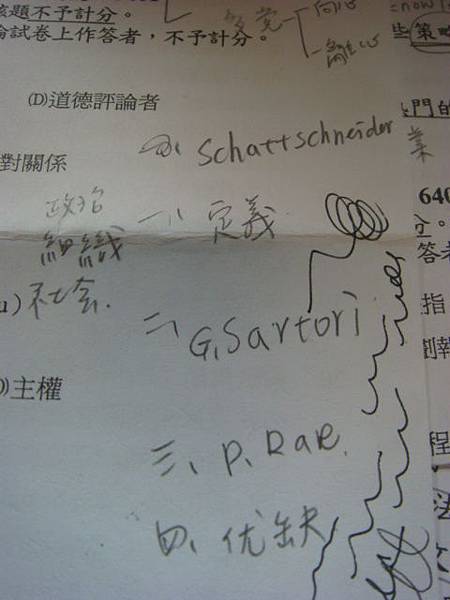 該題不予計分。
論試卷上作答者，不予計分。
多党
向心
離心
些策略
(D)道德評論者
Schattschneider
門的
業
對關係
政治
組織
社会
一、定義
640
分。
答者
u)
二、G.Sartori
指
劃
D)主權
三、P.Rae
程
四、优缺
法